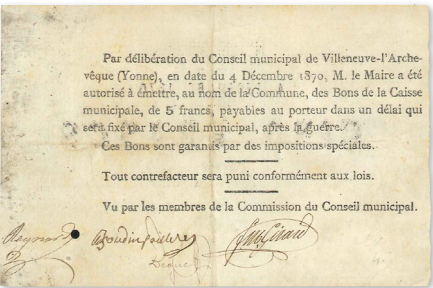 Par délibération du Conseil municipal de Villeneuve-l'Arche-
vêque (Yonne), en date du 4 Décembre 1870, M. le Maire a été
autorisé à émettre, au nom de la Commune, des Bons de la Caisse
municipale, de 5 francs, payables au porteur dans un délai qui
sera fixé par le Conseil municipal, après la guerre.
Ces Bons sont garantis par des impositions spéciales.
Tout contrefacteur sera puni conformément aux lois.
Vu par les membres de la Commission du Conseil municipal.